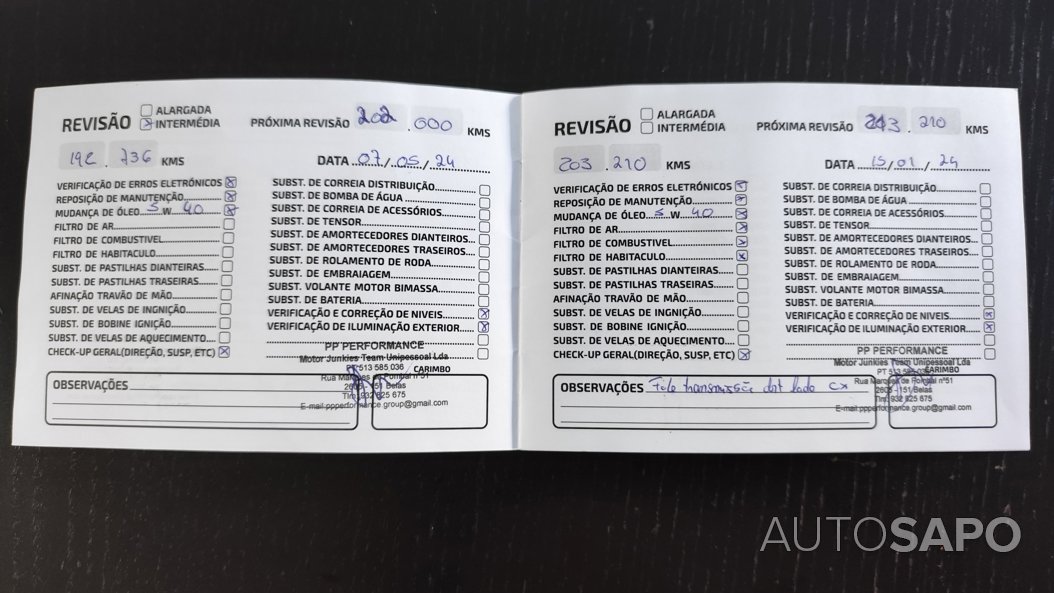 REVISÃO ALARGADA
INTERMÉDIA
PRÓXIMA REVISÃO 202.000 KMS
192.736 KMS
DATA 07/05/24
VERIFICAÇÃO DE ERROS ELETRÓNICOS
REPOSIÇÃO DE MANUTENÇÃO
MUDANÇA DE ÓLEO 5 W 40
FILTRO DE AR
FILTRO DE COMBUSTIVEL
FILTRO DE HABITACULO
SUBST. DE PASTILHAS DIANTEIRAS
SUBST. DE PASTILHAS TRASEIRAS
AFINAÇÃO TRAVÃO DE MÃO
SUBST. DE VELAS DE INGNIÇÃO
SUBST. DE BOBINE IGNIÇÃO
SUBST. DE VELAS DE AQUECIMENTO
CHECK-UP GERAL(DIREÇÃO, SUSP, ETC)
SUBST. DE CORREIA DISTRIBUIÇÃO
SUBST. DE BOMBA DE ÁGUA
SUBST. DE CORREIA DE ACESSÓRIOS
SUBST. DE TENSOR
SUBST. DE AMORTECEDORES DIANTEIROS
SUBST. DE AMORTECEDORES TRASEIROS
SUBST. DE ROLAMENTO DE RODA
SUBST. DE EMBRAIAGEM
SUBST. VOLANTE MOTOR BIMASSA
SUBST. DE BATERIA
VERIFICAÇÃO E CORREÇÃO DE NIVEIS
VERIFICAÇÃO DE ILUMINAÇÃO EXTERIOR
PP PERFORMANCE
Motor Junkies Team Unipessoal Lda
PT 513 585 036
CARIMBO
Rua Marques de Pombal nº51
2605-151 Belas
Tlm: 932 825 675
E-mail:ppperformance.group@gmail.com
OBSERVAÇÕES
REVISÃO ALARGADA
INTERMÉDIA
PRÓXIMA REVISÃO 213.210 KMS
203.210 KMS
DATA 15/01/24
VERIFICAÇÃO DE ERROS ELETRÓNICOS
REPOSIÇÃO DE MANUTENÇÃO
MUDANÇA DE ÓLEO 5 W 40
FILTRO DE AR
FILTRO DE COMBUSTIVEL
FILTRO DE HABITACULO
SUBST. DE PASTILHAS DIANTEIRAS
SUBST. DE PASTILHAS TRASEIRAS
AFINAÇÃO TRAVÃO DE MÃO
SUBST. DE VELAS DE INGNIÇÃO
SUBST. DE BOBINE IGNIÇÃO
SUBST. DE VELAS DE AQUECIMENTO
CHECK-UP GERAL(DIREÇÃO, SUSP, ETC)
SUBST. DE CORREIA DISTRIBUIÇÃO
SUBST. DE BOMBA DE ÁGUA
SUBST. DE CORREIA DE ACESSÓRIOS
SUBST. DE TENSOR
SUBST. DE AMORTECEDORES DIANTEIROS
SUBST. DE AMORTECEDORES TRASEIROS
SUBST. DE ROLAMENTO DE RODA
SUBST. DE EMBRAIAGEM
SUBST. VOLANTE MOTOR BIMASSA
SUBST. DE BATERIA
VERIFICAÇÃO E CORREÇÃO DE NIVEIS
VERIFICAÇÃO DE ILUMINAÇÃO EXTERIOR
PP PERFORMANCE
Motor Junkies Team Unipessoal Lda
PT 513 585 036
CARIMBO
Rua Marques de Pombal nº51
2605-151 Belas
Tlm: 932 825 675
E-mail:ppperformance.group@gmail.com
OBSERVAÇÕES Fole transmissão lado cx
AUTOSAPO